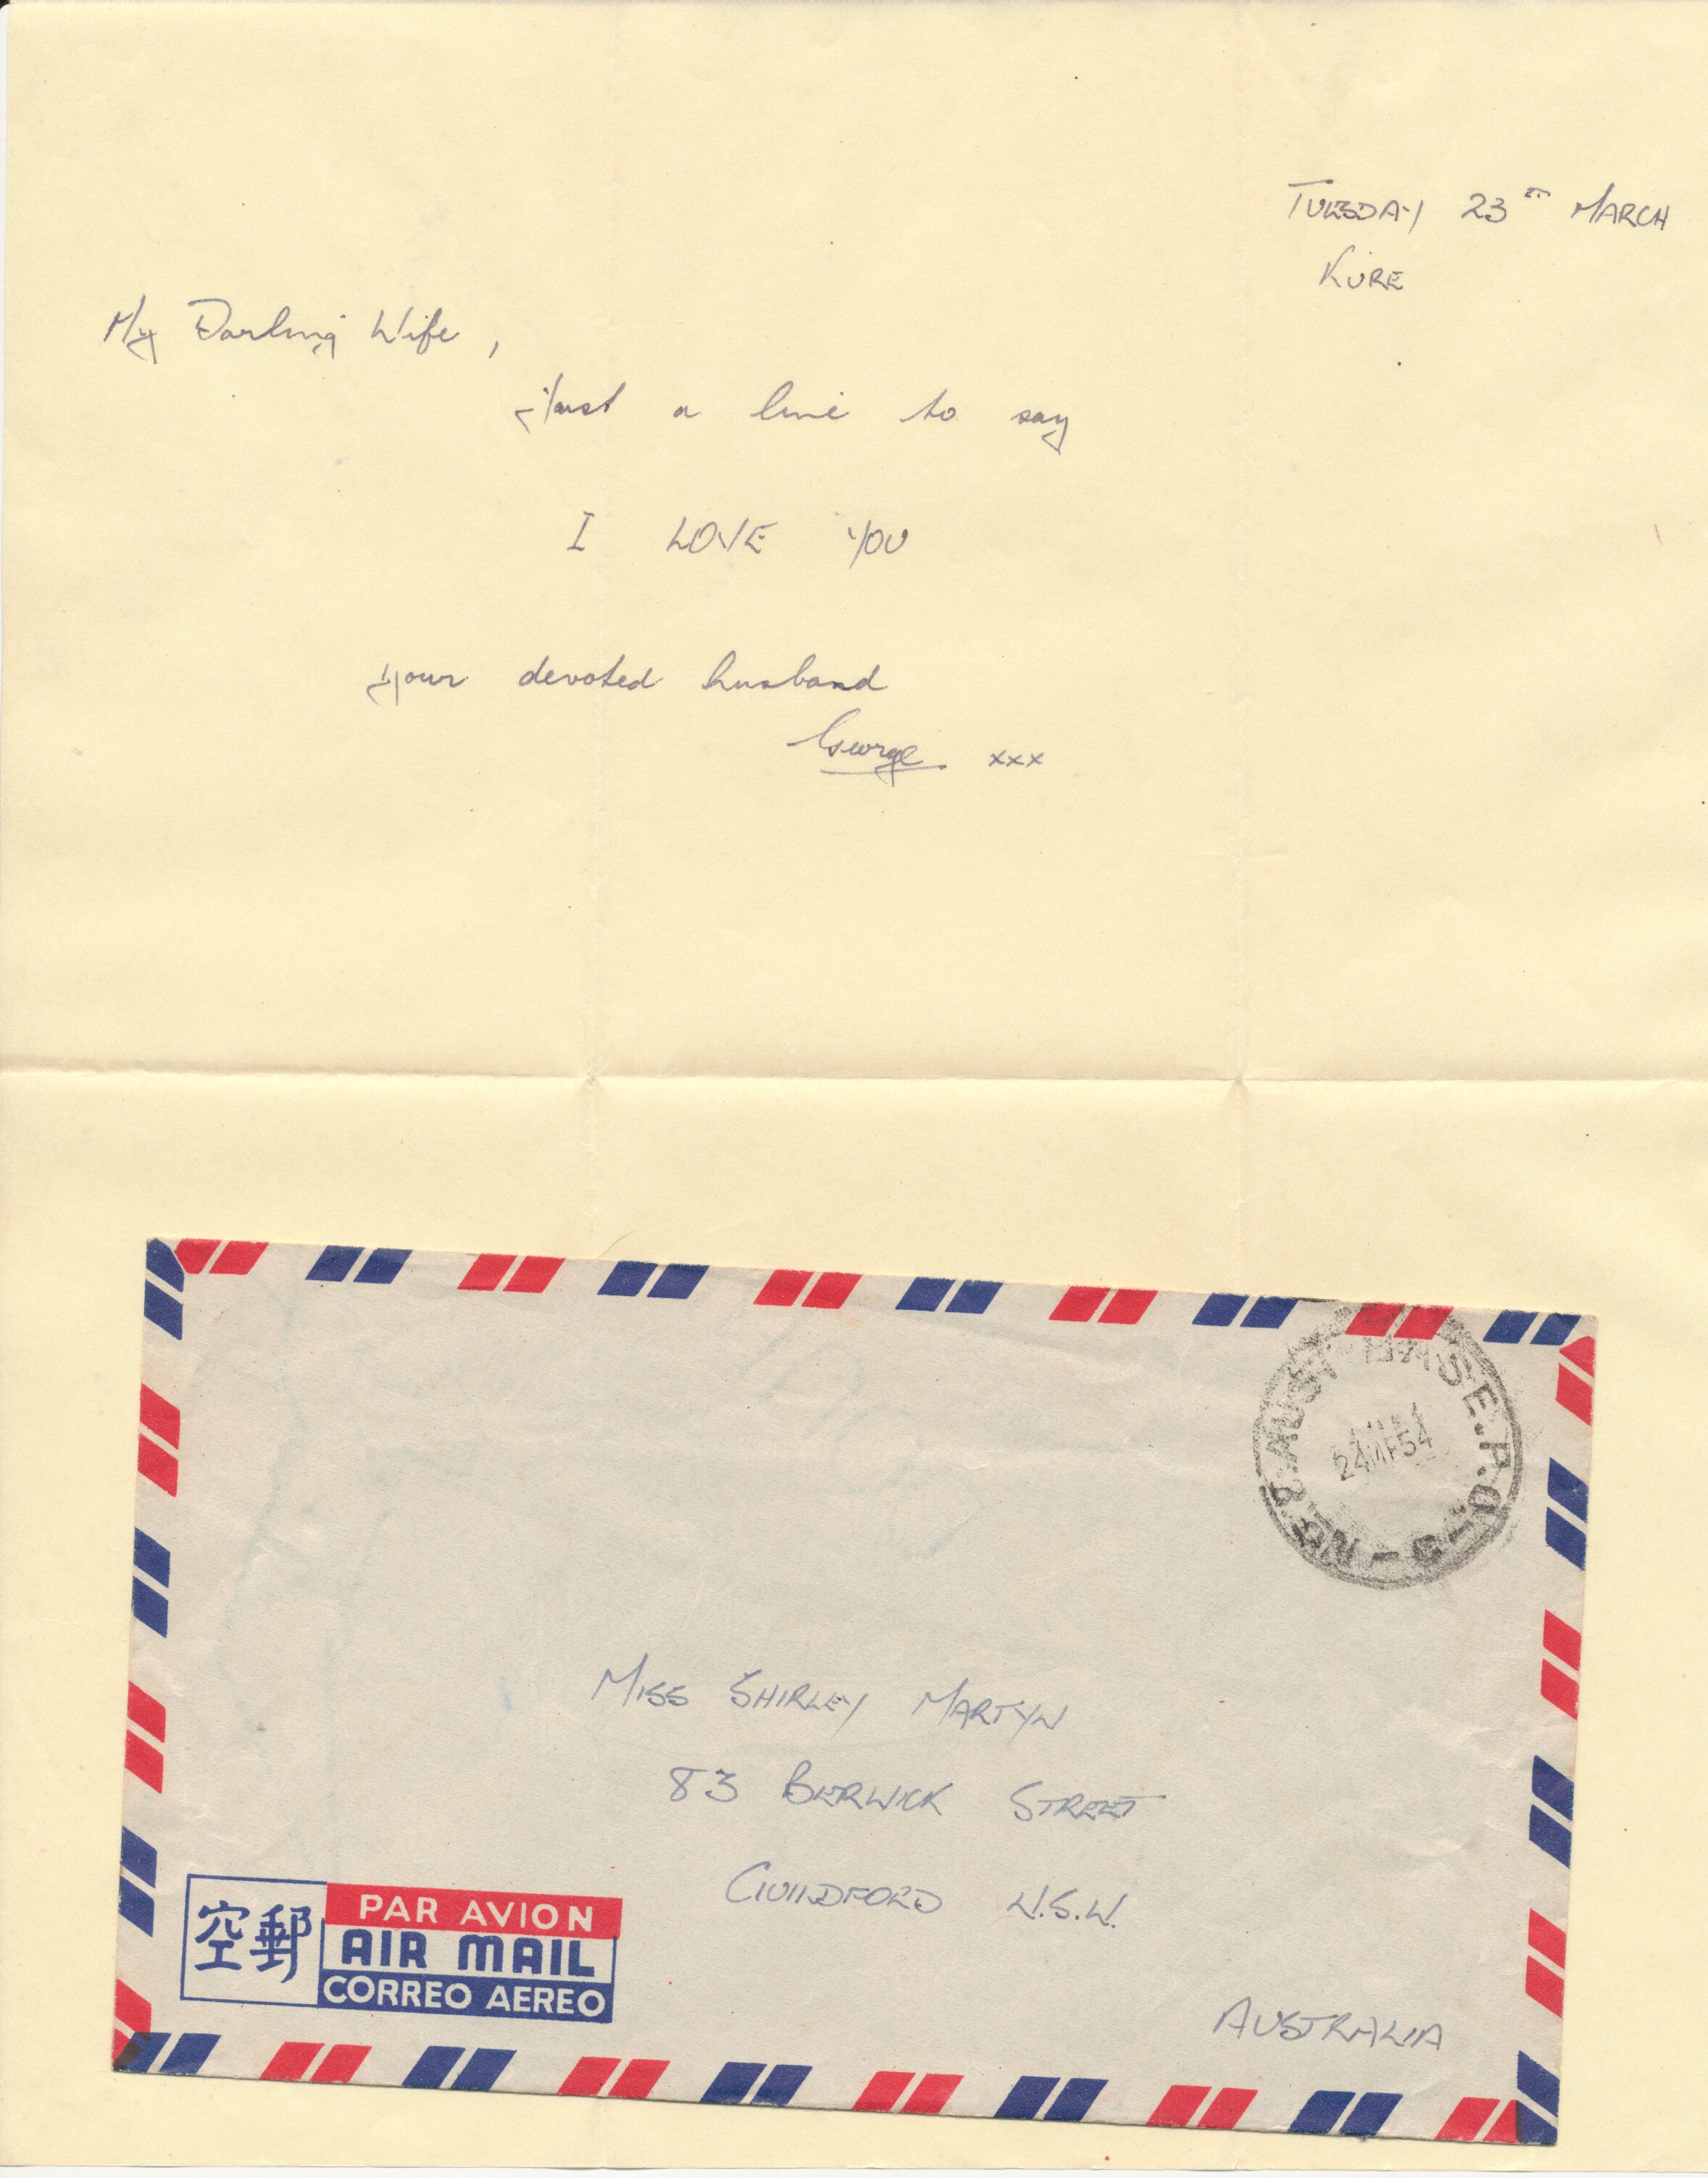 TUESDAY 23RD MARCH
KURE
My Darling Wife,
Just a line to say
I LOVE YOU
Your devoted husband
George xxx
AUST
24 MR 54
MISS SHIRLEY MARTYN
83 BERWICK STREET
GUILDFORD N.S.W.
AUSTRALIA
空郵
PAR AVION
AIR MAIL
CORREO AEREO